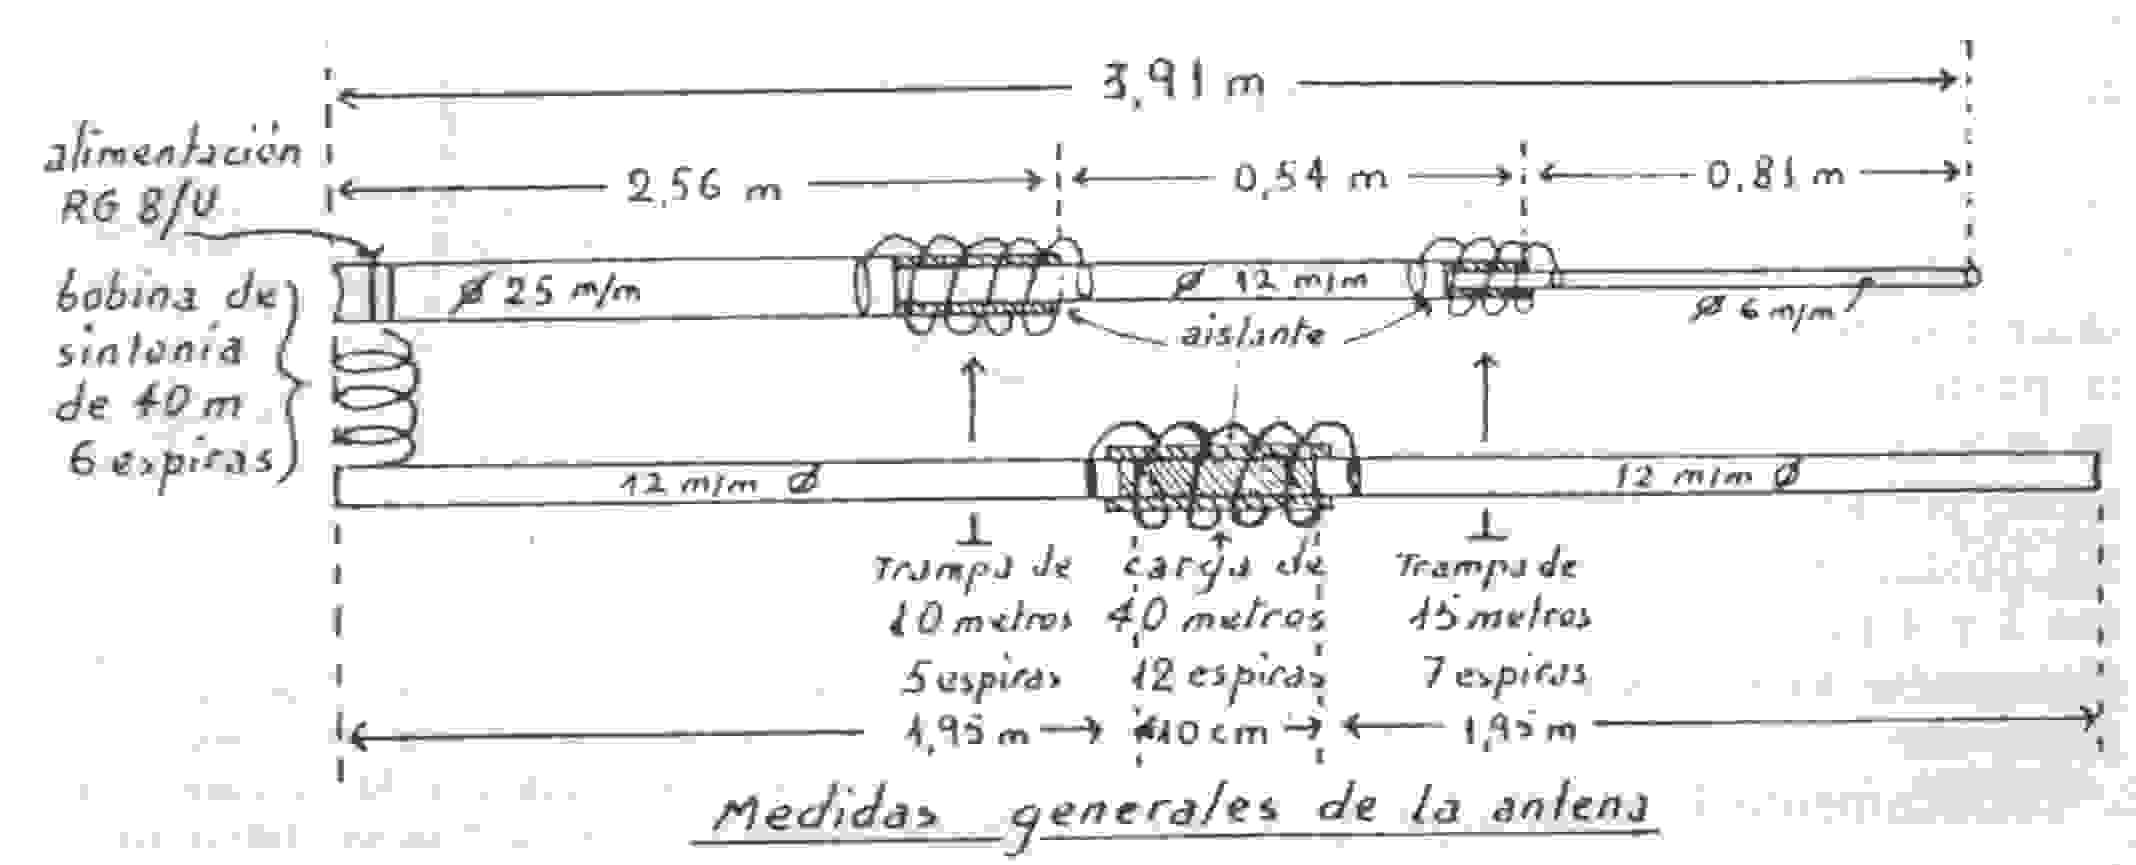 3,91 m
alimentación
RG 8/U
2,56 m
0,54 m
0,81 m
bobina de
sintonía
de 40 m
6 espiras
Ø 25 m/m
Ø 12 m/m
Ø 6 m/m
aislante
12 m/m Ø
12 m/m Ø
Trampa de
10 metros
5 espiras
1,95 m
carga de
40 metros
12 espiras
10 cm
Trampa de
15 metros
7 espiras
1,95 m
Medidas generales de la antena